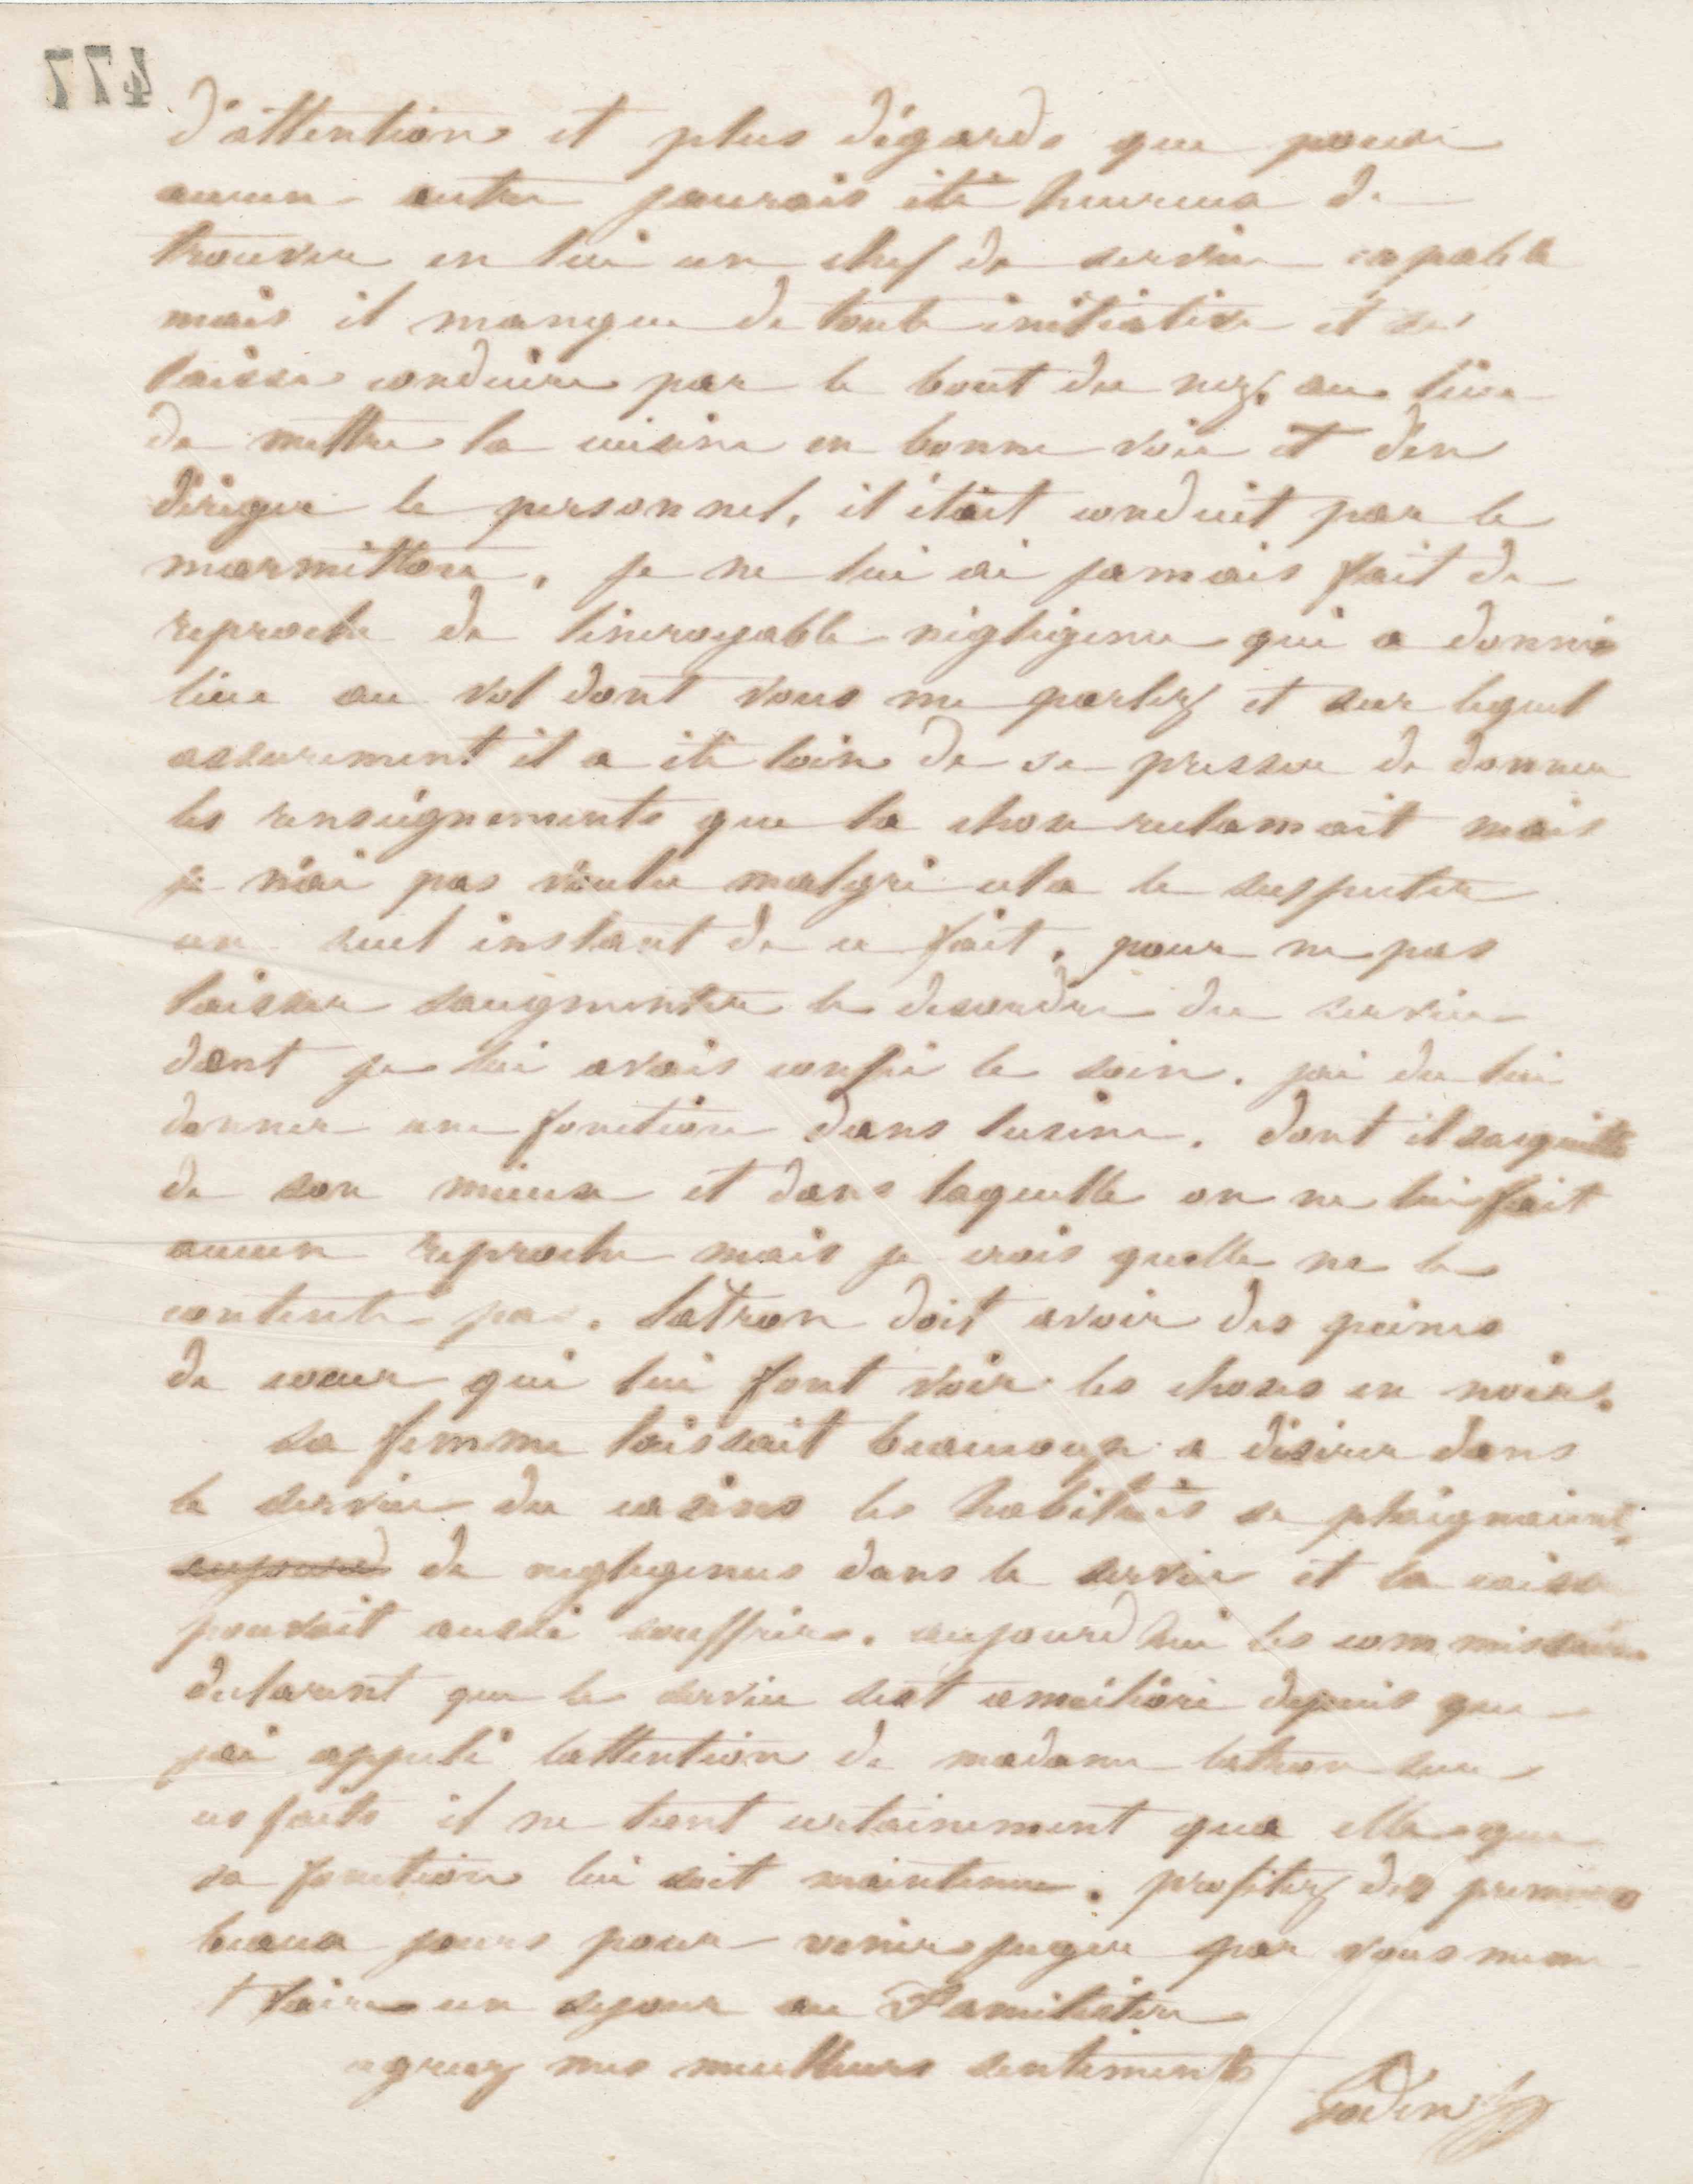 477
d'attention et plus d'égards que pour
aucun autre jaurais été heureux de
trouver en lui un chef de service capable
mais il manque de toute initiative et se
laisse conduire par le bout du nez, au lieu
de mettre la cuisine en bonne voie et d'en
diriger le personnel, il était conduit par le
marmitton, je ne lui ai jamais fait de
reproche de lincroyable négligence qui a donné
lieu au vol dont vous me parlez et sur lequel
assurement il a été loin de se presser de donner
les renseignements que la chose reclamait mais
je n'ai pas voulu malgré cela le suspecter
un seul instant de ce fait, pour ne pas
laisser saugmenter le desordre du service
dont je lui avais confié le soin, jai du lui
donner une fonction dans lusine, dont il sacquitte
de son mieux et dans laquelle on ne lui fait
aucun reproche mais je crois quelle ne le
contente pas. Latron doit avoir des peines
de cœur qui lui font voir les choses en noir.
sa femme laissait beaucoup a désirer dans
le service du casino les habitués se plaignaient
de negligences dans le service et la caisse
pouvait aussi souffrir. aujourd'hui les commissaires
declarent que le service sest amélioré depuis que
jai appelé lattention de madame latron sur
ces faits il ne tient certainement qua elle que
sa fonction lui soit maintenue. profitez des premiers
beaux jours pour venir juger par vous meme
et faire un sejour au Familistère
agréez mes meilleurs sentiments
Godin